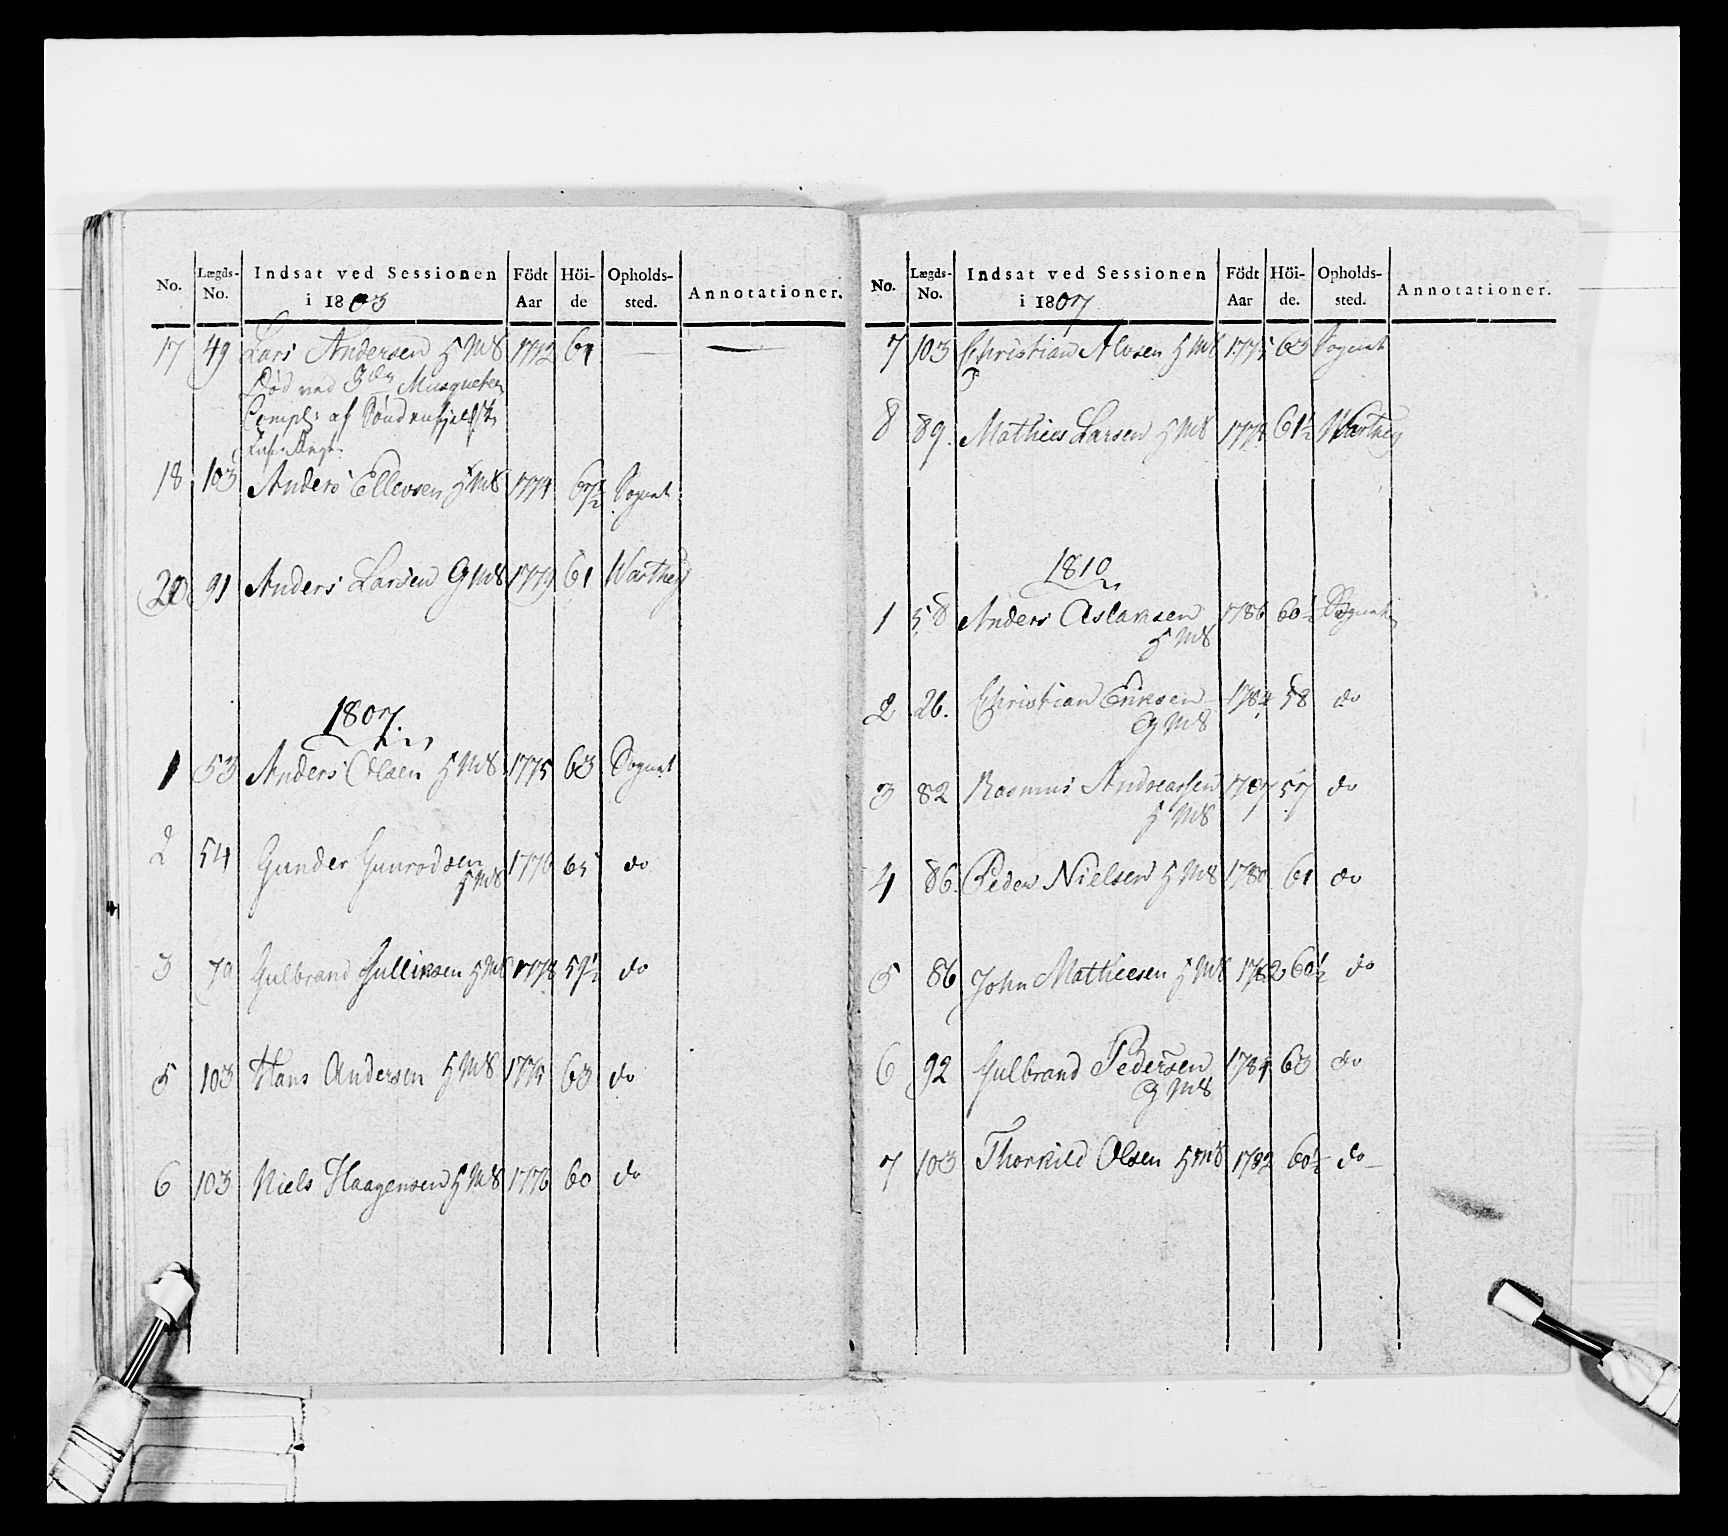 No. Lægds-No. Indsat ved Sessionen i 1803 Födt Aar Höi-de Opholds-sted. Annotationer.
17 49 Lars Andersen 1772 61
Død ved 3die Musqueteer
Compl: af Søndenfjeldske
Inf: Regt:
18 103 Anders Ellevsen 1774 67½ Sognet
20 91 Anders Larsen 1779 61
1807.
1 53 Anders Olsen 1775 63 Sognet
2 54 Gunder Gunrodsen 1776 65 do
3 79 Gulbrand Gulliksen 1778 59½ do
5 103 Hans Andersen 1775 63 do
6 103 Niels Haagensen 1776 60 do
No. Lægds-No. Indsat ved Sessionen i 1807 Födt Aar Höi-de. Opholds-sted. Annotationer.
7 103 Christian Alvsen 1775 63 Sognet
8 89. Mathies Larsen 1778 61½
1810
1 58 Anders Aslaksen 1786 60½ Sognet
2 26. Christian Eriksen 1784 58 do
3 82 Rasmus Andreassen 1787 57 do
4 86. Peder Nielsen 1780 61 do
5 86 John Mathiesen 1782 60½ do
6 92 Gulbrand Pedersen 1784 63 do
7 103 Thorkild Olsen 1782 60½ do